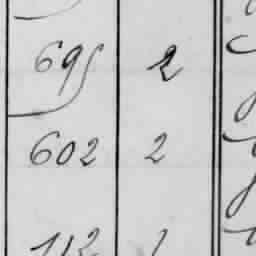 695 2
602 2
112 1